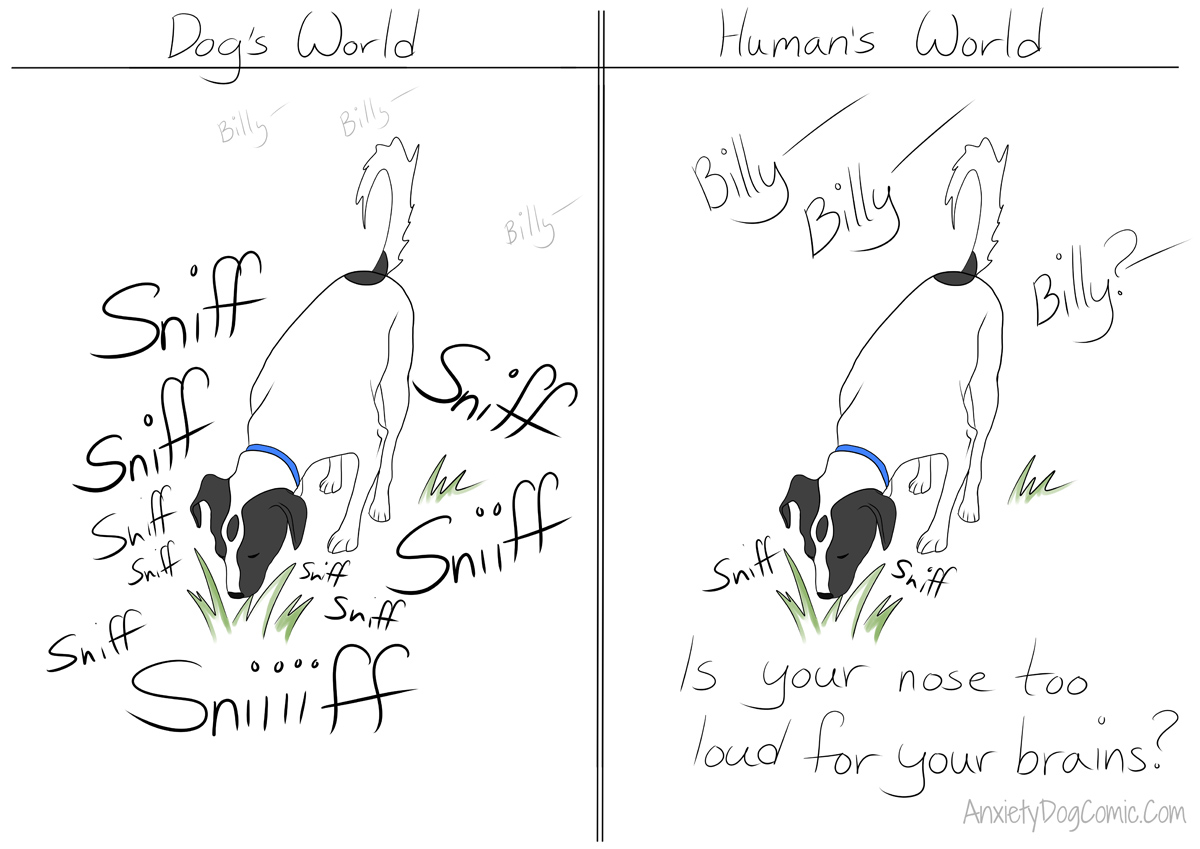 Dog's World
Billy
Billy
Billy
Sniff
Sniff
Sniff
Sniff
Sniff
Sniff
Sniiff
Sniff
Sniff
Sniiiiff
Human's World
Billy
Billy
Billy?
Sniff
Sniff
Is your nose too
loud for your brains?
AnxietyDogComic.Com